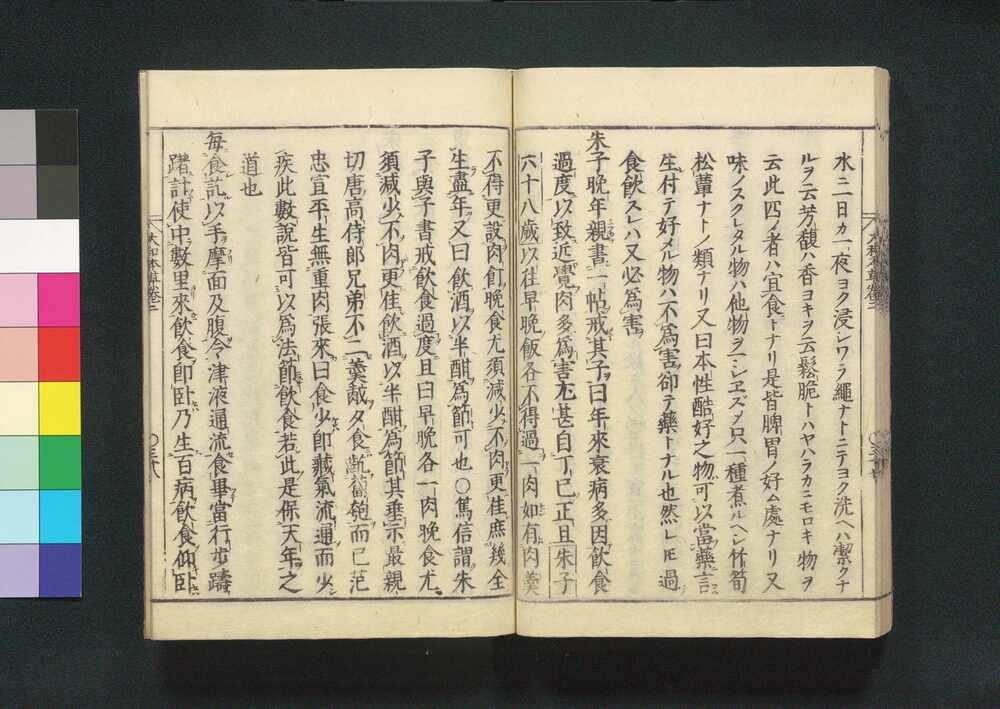 水ニ二日カ一夜ヨク浸シワラ繩ナトニテヨク洗ヘハ潔クナ
ルヲ云芳馥ハ香ヨキヲ云鬆脆トハヤハラカニモロキ物ヲ
云此四ノ者ハ宜食トナリ是皆脾胃ノ好ム處ナリ又
味ノスクレタル物ハ他物ヲマシヱズ只一種煮ルヘシ竹筍
松蕈ナトノ類ナリ又曰本性酷好之物可以當藥言
生付テ好メル物ハ不為害卻テ藥トナル也然レ𪜈過
食飲スレハ又必為害
朱子晚年親書一帖戒其子曰年來衰病多因飲食
過度以致近覺肉多為害尤甚自丁巳正旦朱子
六十八歲以往早晚飯各不得過一肉如有肉羹
不得更設肉飣晚食尤須減少不肉更佳庶幾全
生盡年又曰飲酒以半酣為節可也○篤信謂朱
子與子書戒飲食過度且曰早晚各一肉晚食尤
須減少不肉更佳飲酒以半酣為節其垂示最親
切唐高侍郎兄弟不二羹胾夕食齕蔔匏而已范
忠宣平生無重肉張來曰食少即藏氣流通而少
疾此數說皆可以為法節飲食若此是保天年之
道也
每食訖以手摩面及腹令津液通流食畢當行步躊
躇計使中數里來飲食即臥乃生百病飲食仰臥
大和本草卷二
〇三八